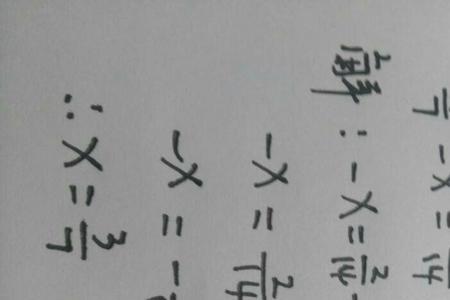 /7 -x= /14
解: -x= 2/14 -
-x = 2/14
-x = -
∴ x = 3/7